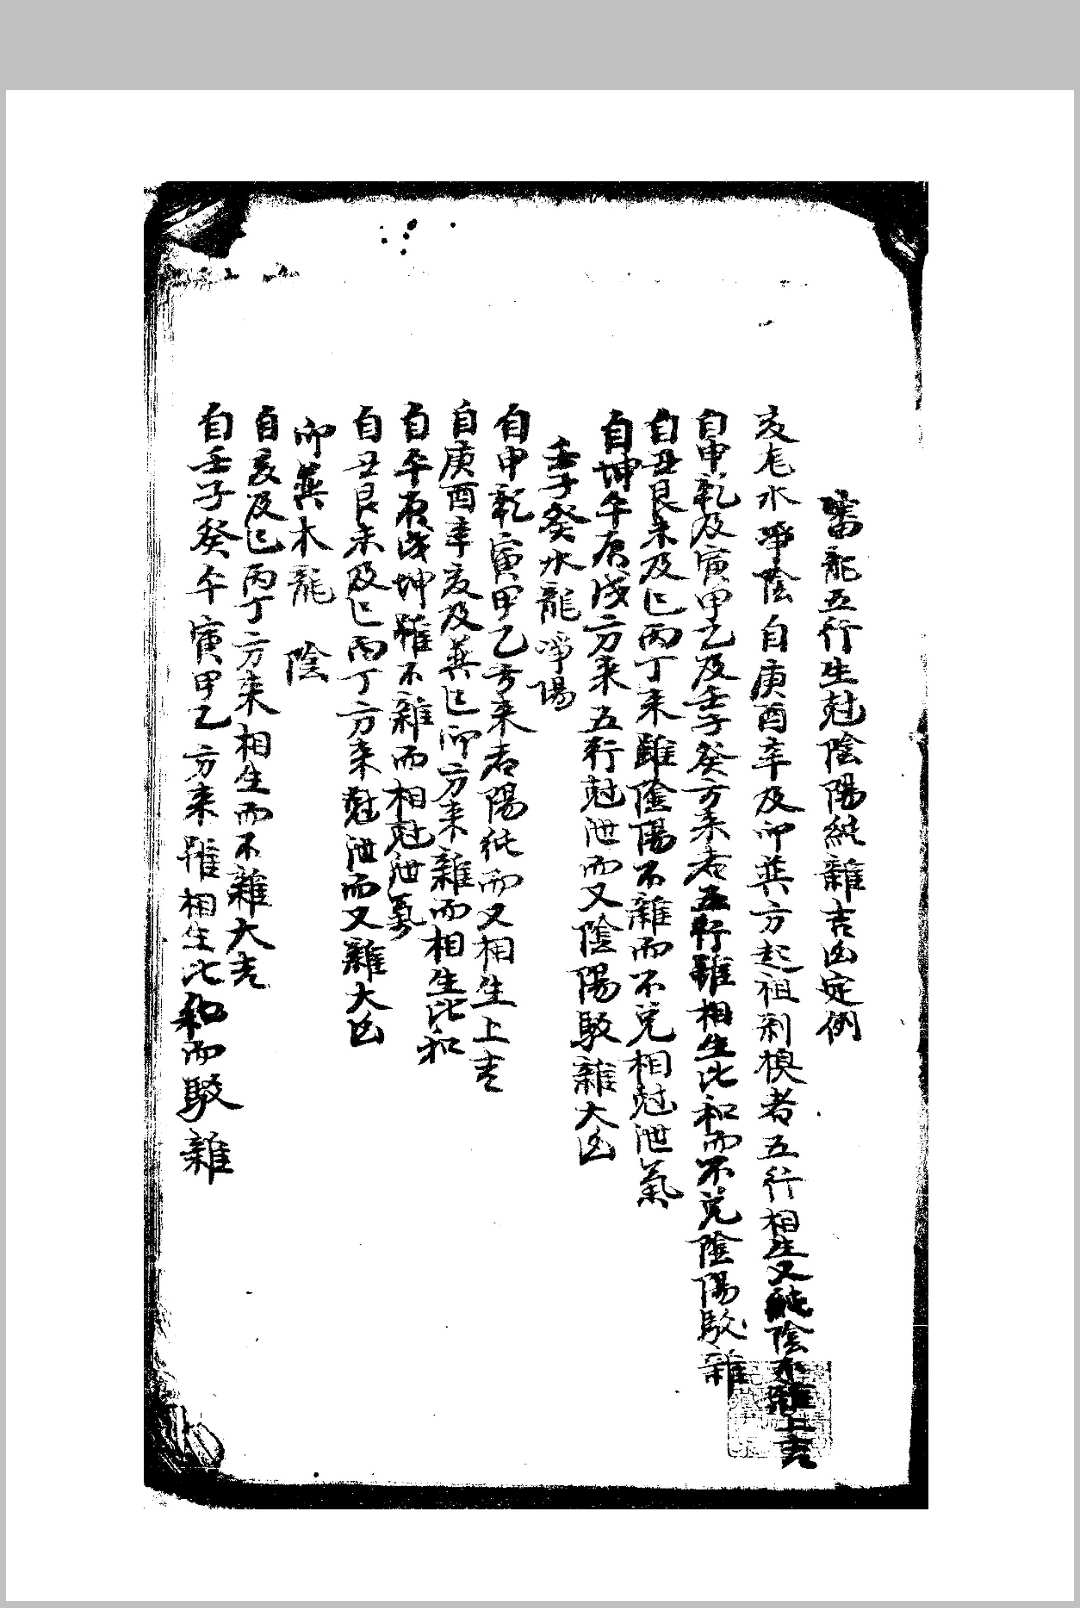 審龍五行生尅陰陽純雜吉凶定例
亥龙水淨陰自庚酉辛及卯巽方起祖剥換者五行相生又純陰不雜上吉
自申乾及寅甲乙及壬子癸方来者五行雖相生比和而不免陰陽駁雜
自丑艮未及巳丙丁来雖陰陽不雜而不免相尅泄氣
自坤午庚戌方来五行尅泄而又陰陽駁雜大凶
壬子癸水龍淨陽
自申乾寅甲乙方来者陽純而又相生上吉
自庚酉辛亥及巽巳卯方来雜而相生比和
自午庚戌坤雖不雜而相尅泄
自丑艮未及巳丙丁方来尅泄而又雜大凶
卯巽木龍 陰
自亥及巳丙丁方来相生而不雜大吉
自壬子癸午寅甲乙方来雖相生比和而駁雜